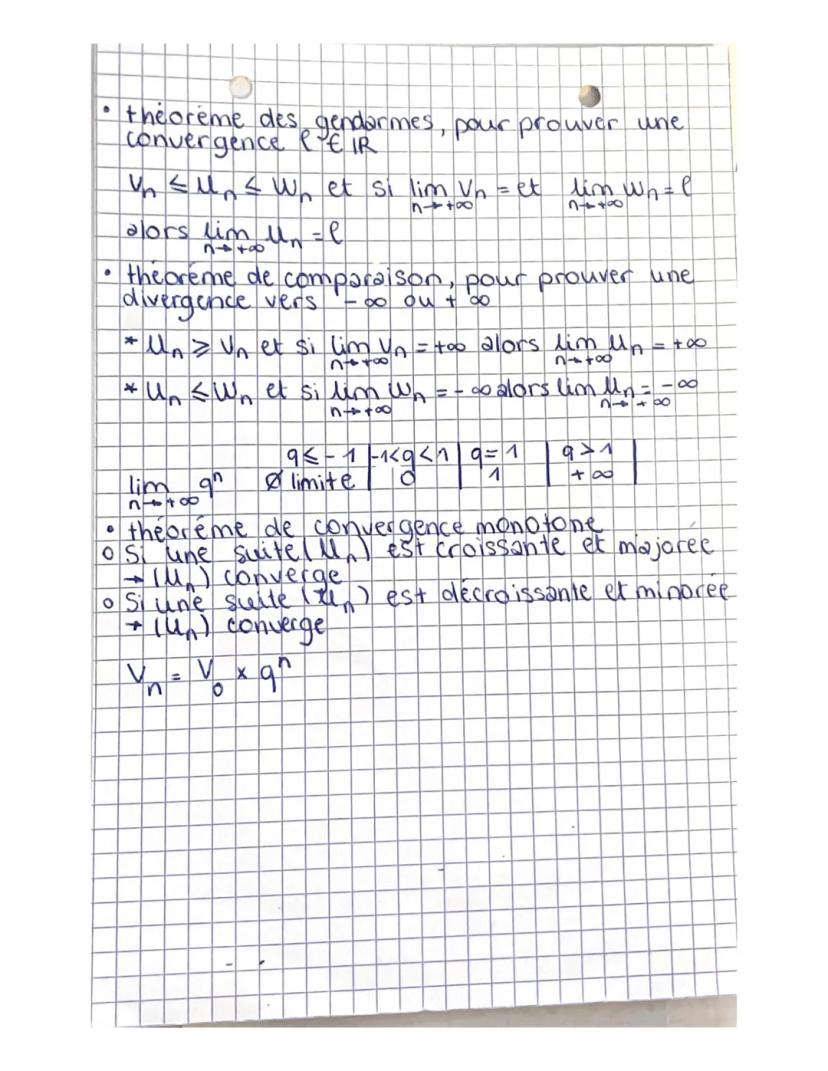 • théorème des gendarmes, pour prouver une
convergence ℓ ∈ IR
Vn ≤ Un ≤ Wn et si lim Vn = et lim Wn = ℓ
n→+∞ n→+∞
alors lim Un = ℓ
n→+∞
• théorème de comparaison, pour prouver une
divergence vers -∞ ou +∞
* Un ≥ Vn et si lim Vn = +∞ alors lim Un = +∞
n→+∞ n→+∞
* Un ≤ Wn et si lim Wn = -∞ alors lim Un = -∞
n→+∞ n→+∞
q ≤ -1 | -1<q<1 | q=1 | q>1 |
lim qⁿ Ø limite | 0 | 1 | +∞ |
n→+∞
• théorème de convergence monotone
o Si une suite (Un) est croissante et majorée
→ (Un) converge
o Si une suite (Un) est décroissante et minorée
→ (Un) converge
Vn = V0 × qⁿ